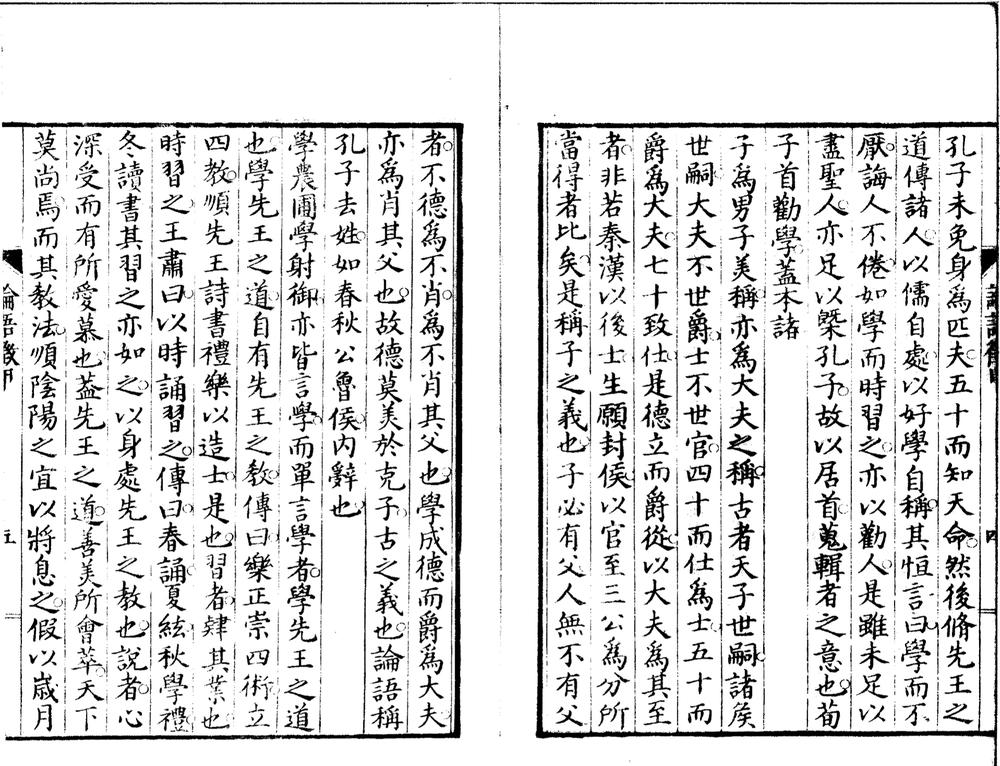 孔子未免身爲匹夫五十而知天命然後脩先王之
道傳諸人以儒自處以好學自稱其恒言曰學而不
厭誨人不倦如學而時習之亦以勸人是雖未足以
盡聖人亦足以槩孔子故以居首蒐輯者之意也荀
子首勸學蓋本諸
子爲男子美稱亦爲大夫之稱古者天子世嗣諸矦
世嗣大夫不世爵士不世官四十而仕爲士五十而
爵爲大夫七十致仕是德立而爵從以大夫爲其至
者非若秦漢以後士生願封侯以官至三公爲分所
當得者比矣是稱子之義也子必有父人無不有父
四
者不德爲不肖爲不肖其父也學成德而爵爲大夫
亦爲肖其父也故德莫美於克子古之義也論語稱
孔子去姓如春秋公魯侯内辭也
學農圃學射御亦皆言學而單言學者學先王之道
也學先王之道自有先王之教傳曰樂正崇四術立
四教順先王詩書禮樂以造士是也習者肄其業也
時習之王肅曰以時誦習之傳曰春誦夏絃秋學禮
冬讀書其習之亦如之以身處先王之教也說者心
深受而有所愛慕也葢先王之道善美所會萃天下
莫尚焉而其教法順陰陽之宜以將息之假以歲月
論語徵甲
五